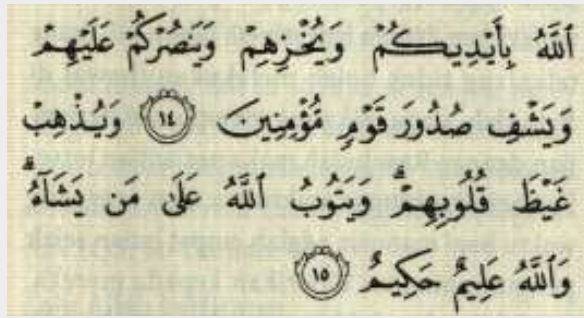 ٱللَّهُ بِأَيْدِيكُمْ وَيُخْزِهِمْ وَيَنصُرْكُمْ عَلَيْهِمْ
وَيَشْفِ صُدُورَ قَوْمٍ مُّؤْمِنِينَ ١٤ وَيُذْهِبْ
غَيْظَ قُلُوبِهِمْ ۗ وَيَتُوبُ ٱللَّهُ عَلَىٰ مَن يَشَآءُ ۗ
وَٱللَّهُ عَلِيمٌ حَكِيمٌ ١٥